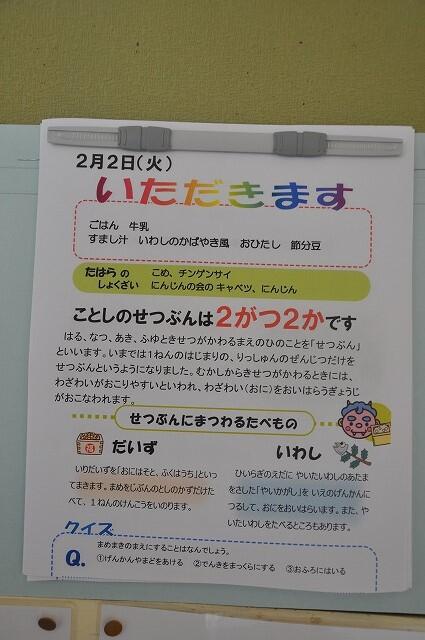 2月2日(火)
いただきます
ごはん 牛乳
すまし汁 いわしのかばやき風 おひたし 節分豆
たはら の こめ、チンゲンサイ
しょくざい にんじんの会の キャベツ、にんじん
ことしのせつぶんは2がつ2かです
はる、なつ、あき、ふゆときせつがかわるまえのひのことを「せつぶん」
といいます。いまでは1ねんのはじまりの、りっしゅんのぜんじつだけを
せつぶんというようになりました。むかしからきせつがかわるときには、
わざわいがおこりやすいといわれ、わざわい(おに)をおいはらうぎょうじ
がおこなわれます。
せつぶんにまつわるたべもの
福 だいず
いりだいずを「おにはそと、ふくはうち」といっ
てまきます。まめをじぶんのとしのかずだけた
べて、1ねんのけんこうをいのります。
いわし
ひいらぎのえだに やいたいわしのあたま
をさした「やいかがし」を いえのげんかんに
つるして、おにをおいはらいます。また、や
いたいわしをたべるところもあります。
クイズ
Q. まめまきのまえにすることはなんでしょう。
①げんかんやまどをあける ②でんきをまっくらにする ③おふろにはいる